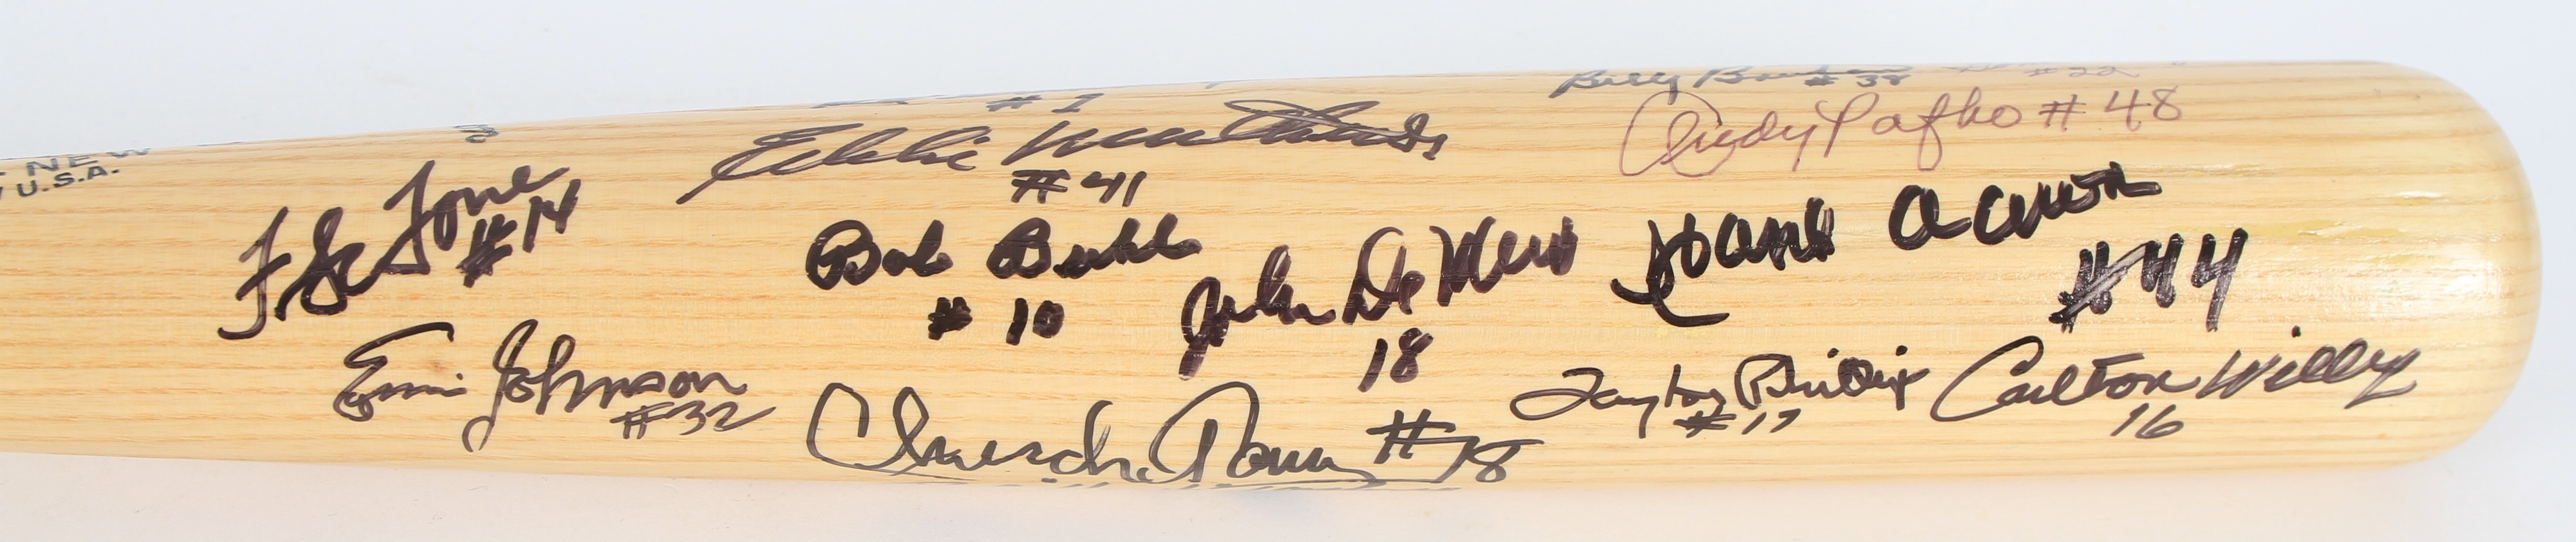 NEW
U.S.A.
#1
Billy #38
#22
Eddie Mathews
#41
Andy Pafko #48
Felix
#14
Bob Buhl
# 10
John De Merit
18
Hank Aaron
#44
Ernie Johnson
#32
Chuck Tanner #18
Taylor Phillips
#17
Carlton Willey
16